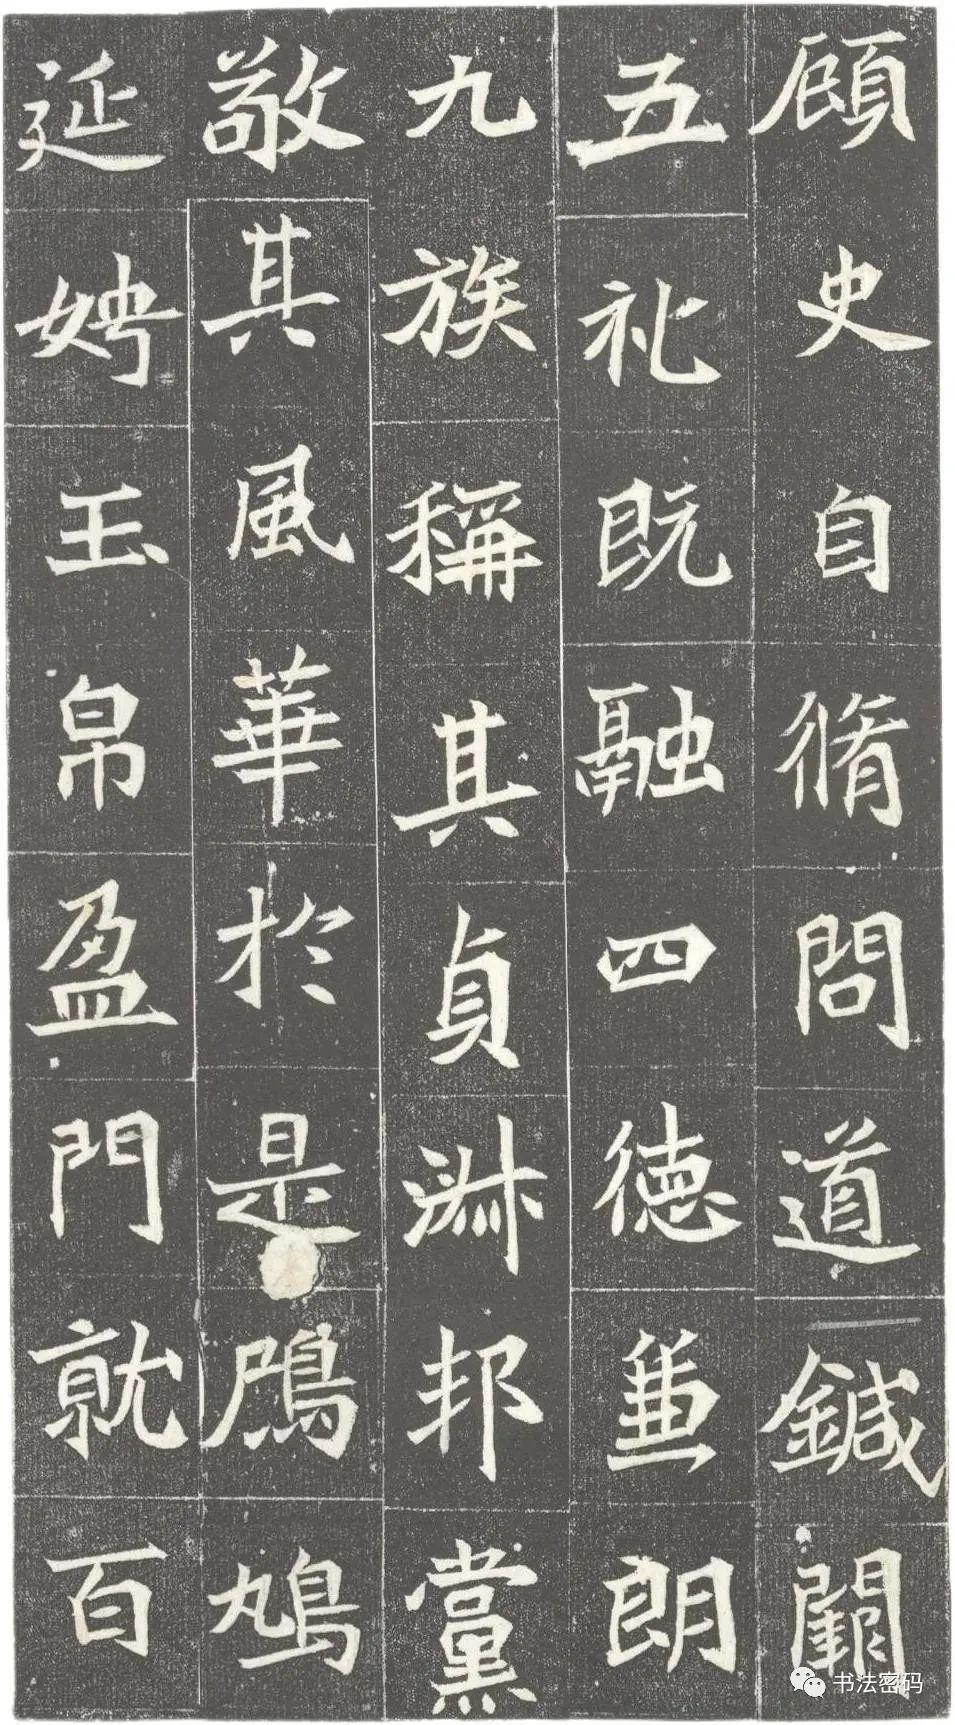 頋史自脩問道鍼
五礼既融四徳兼朗
九族稱其貞淑邦黨
敬其風華於是鴈鳩
延娉玉帛盈門就百
书法密码